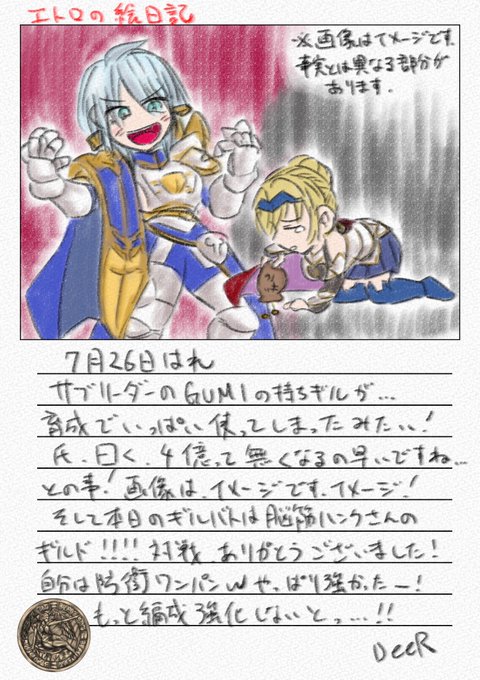 エトロの絵日記
※画像はイメージです。
事実とは異なる部分が
あります.
7月26日はれ
サブリーダーのGUMIの持ちギルが…
育成でいっぱい使ってしまったみたい!
氏、曰く、4億って無くなるの早いですね…
との事!画像は、イメージです、イメージ!
そして本日のギルバトは脳筋ハンクさんの
ギルド!!!!対戦、ありがとうございました!
自分は防衛ワンパンwやっぱり強かったー!
もっと編成強化しないとっ…!!
DeeR